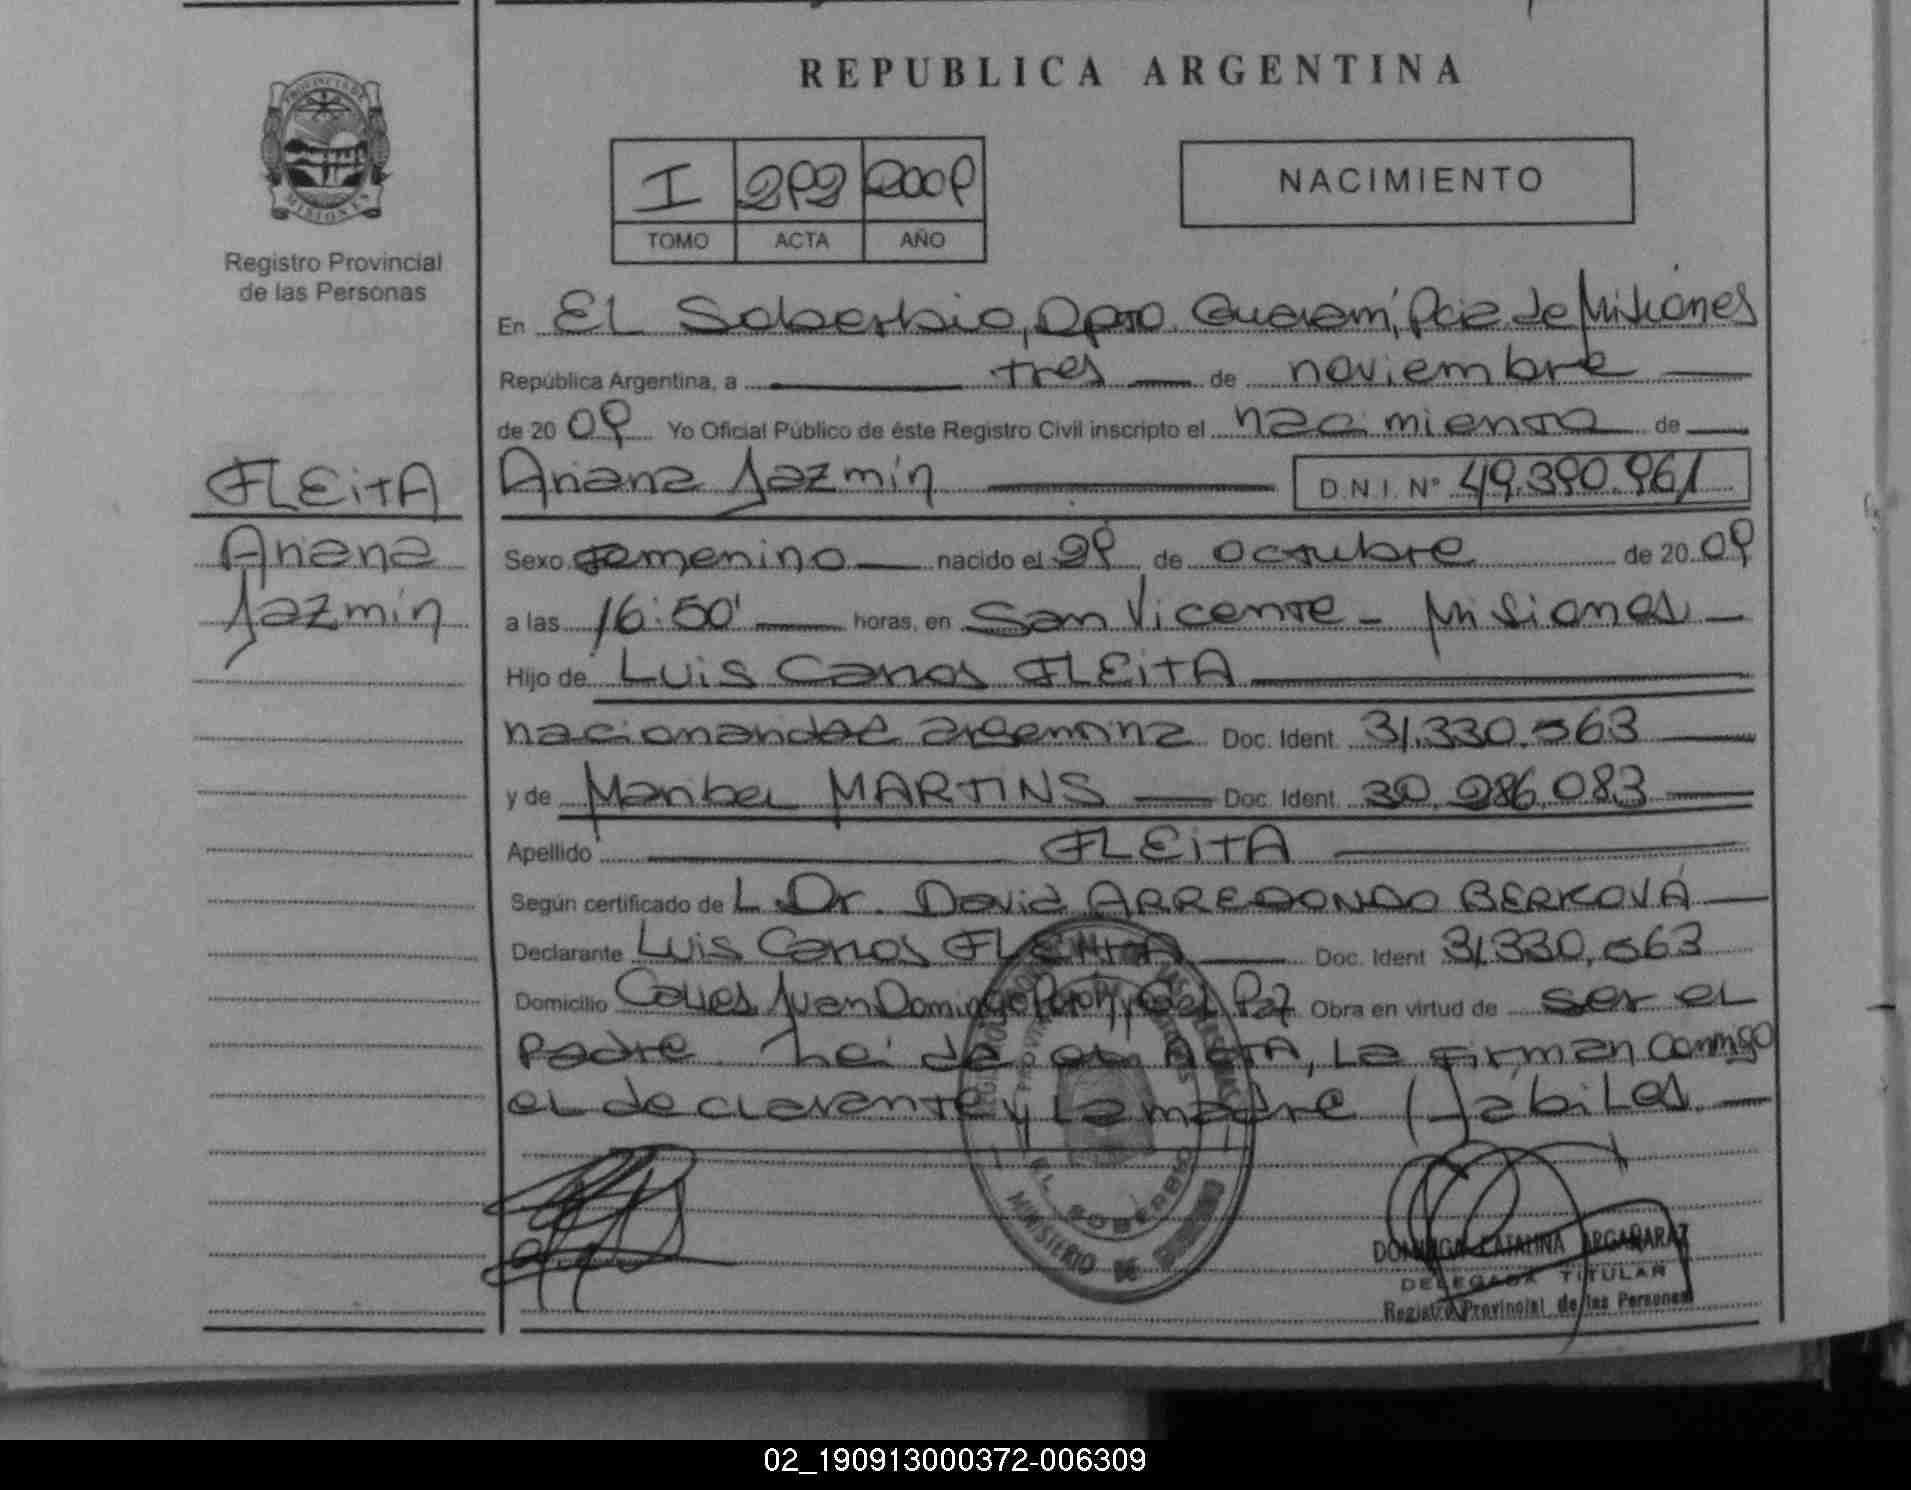 REPUBLICA ARGENTINA
PROVINCIA DE
MISIONES
Registro Provincial
de las Personas
I 292 2009
TOMO ACTA AÑO
NACIMIENTO
En EL Soberbio, Dpto. Guaraní, Pcia. de Misiones
República Argentina, a tres de noviembre
de 2009 Yo Oficial Público de éste Registro Civil inscripto el nacimiento de
FLEITA
Ariana Jazmín D.N.I. Nº 49.390.961
Ariana
Jazmín
Sexo femenino nacido el 29 de octubre de 2009
a las 16:50' horas, en San Vicente - Misiones
Hijo de Luis Carlos FLEITA
nacionalidad argentina Doc. Ident. 31.330.563
y de Maribel MARTINS Doc. Ident. 30.286.083
Apellido FLEITA
Según certificado de L Dr. David ARREDONDO BERKOVA
Declarante Luis Carlos FLEITA Doc. Ident 31.330.563
Domicilio Calles Juan Domingo Perón y de la Paz Obra en virtud de ser el
padre. Leída el ACTA, La firman conmigo
el declarante y La madre (Hábiles.
EL SOBERBIO
MINISTERIO DE
DOMINGA CATALINA ARGAÑARAZ
DELEGADA TITULAR
Registro Provincial de las Personas
02_190913000372-006309